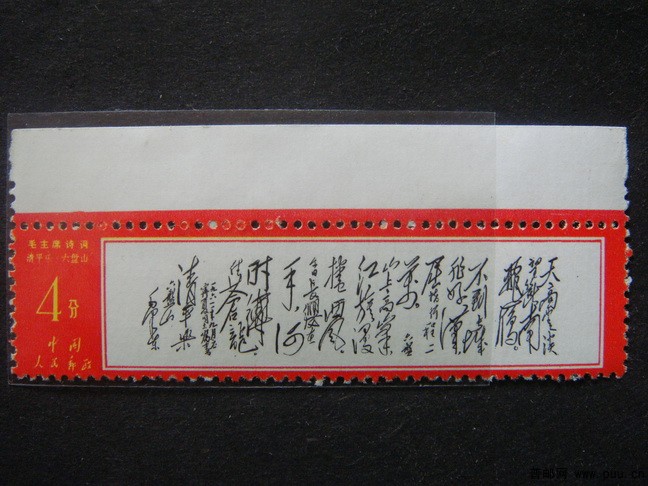 毛主席诗词
清平乐·六盘山
4分
中国
人民邮政
天高云淡
望断南
飞雁。
不到长城
非好汉
屈指行程二
万。六盘
山上高峰
红旗漫
捲西风。
今日长缨在
手何
时缚
住苍龙
清平乐
六盘山
毛泽东
www.pou.cn